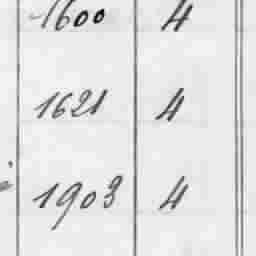 1600 4
1621 4
1903 4